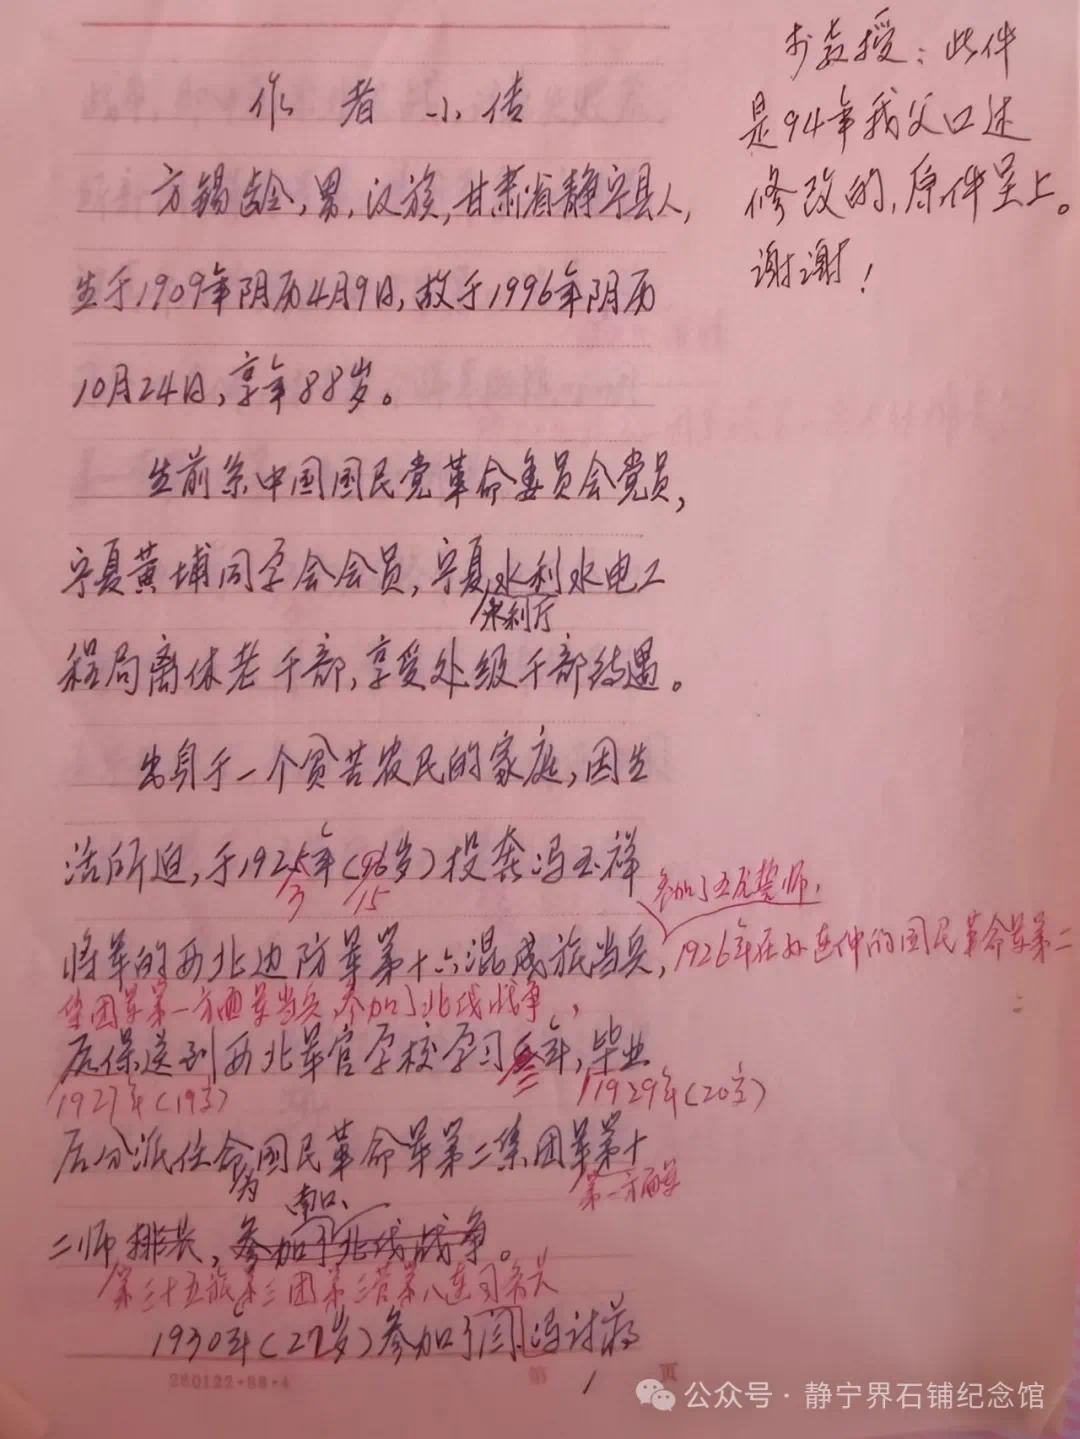 教授：此件
是94年我父口述
修改的，原件呈上。
谢谢！
作者小传
方锡龄，男，汉族，甘肃省静宁县人，
生于1909年阴历4月9日，故于1996年阴历
10月24日，享年88岁。
生前系中国国民党革命委员会党员，
宁夏黄埔同学会会员，宁夏水利水电工
水利厅
程局离休老干部，享受处级干部待遇。
出身于一个贫苦农民的家庭，因生
活所迫，于1925年（16岁）投奔冯玉祥
3 15
参加了五原誓师，
将军的西北边防军第十六混成旅当兵，1926年在孙连仲的国民革命军第二
集团军第一方面军当兵，参加了北伐战争，
后保送到西北军官学校学习年，毕业
1927年（19岁） 1929年（20岁）
后分派任命国民革命军第二集团军第十
为 南口、 第一方面军
二师排长，参加了北伐战争。
第三十五旅第三团第三营第八连司务长
1930年（22岁）参加了阎冯讨蒋
280122·88·4
第 1 页
公众号·静宁界石铺纪念馆